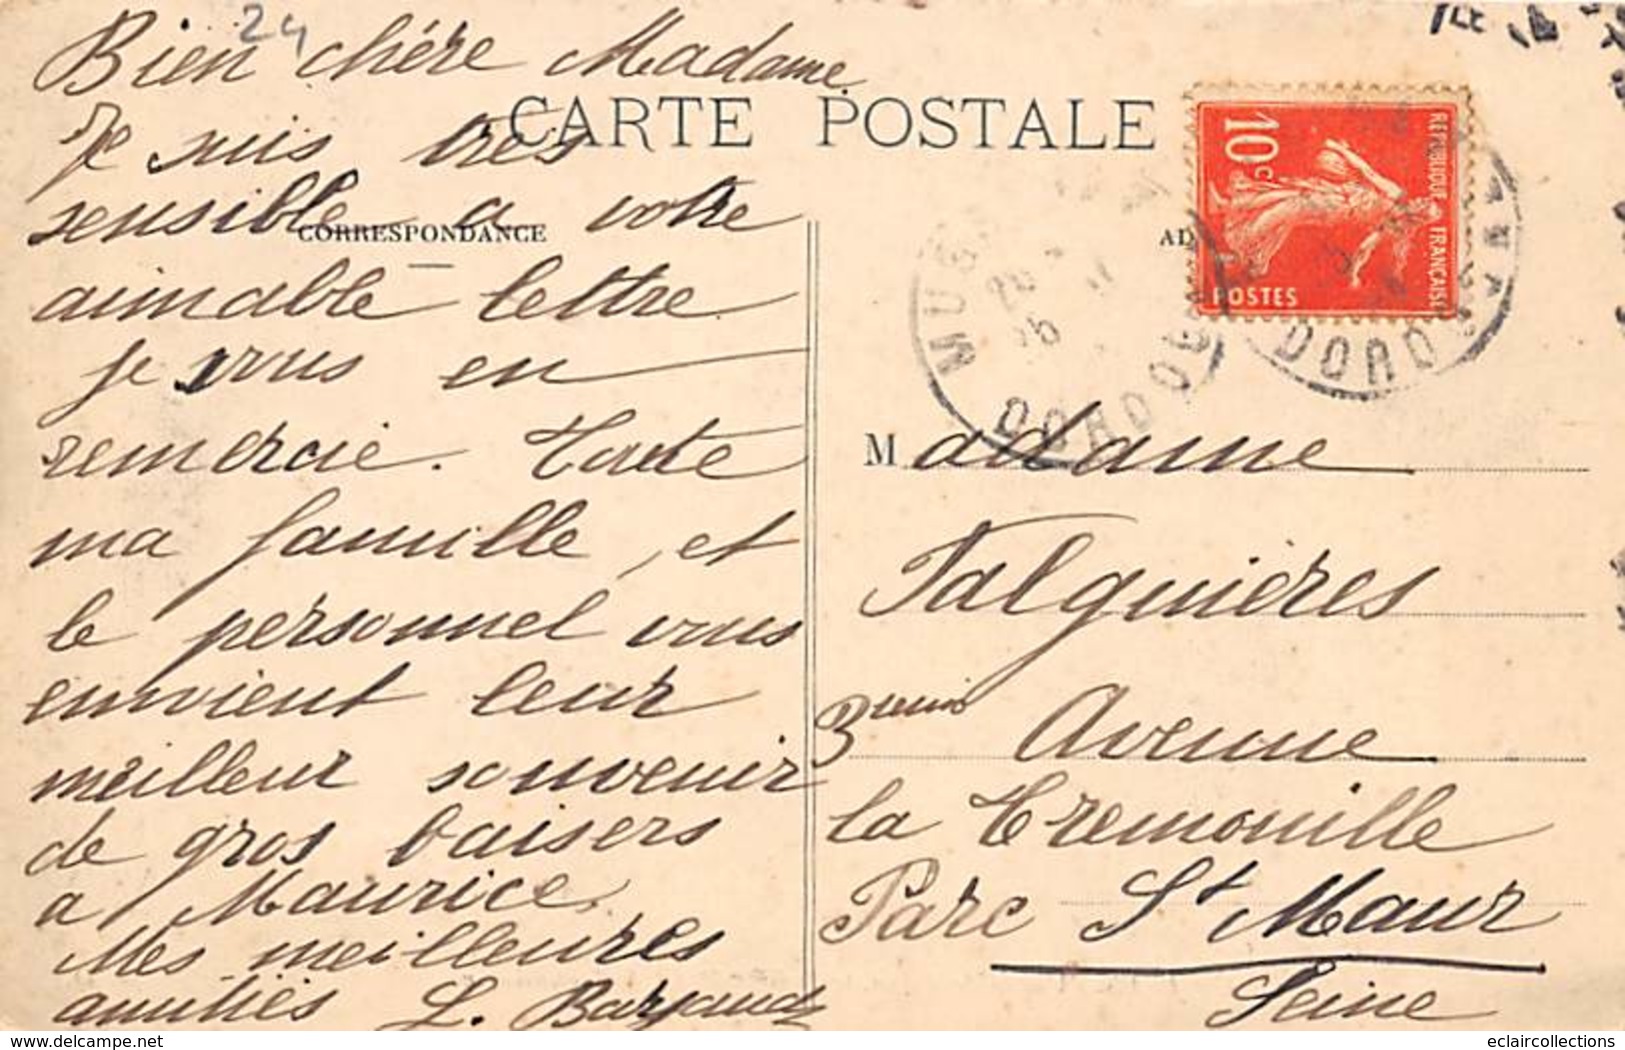 24
Bien chére Madame
Je suis très
sensible a votre
aimable lettre
je vous en
remercie. Toute
ma famille, et
le personnel vous
envoient leur
meilleur souvenir
de gros baisers
a Maurice
Mes meilleures
amitiés L.
CARTE POSTALE
CORRESPONDANCE
10c
REPUBLIQUE FRANÇAISE
POSTES
Madame
Falguières
Avenue
la Tremouille
Parc St Maur
Seine
delcampe.net
eclaircollections